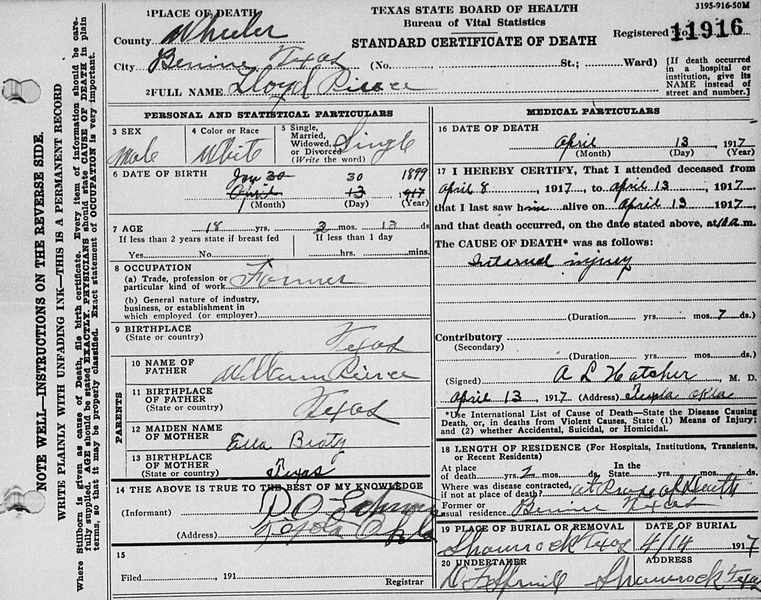 TEXAS STATE BOARD OF HEALTH
Bureau of Vital Statistics
STANDARD CERTIFICATE OF DEATH
3195-916-50M
Registered No. 11916
1 PLACE OF DEATH
County Wheeler
City Texas (No. St.; Ward)
[If death occurred in a hospital or institution, give its NAME instead of street and number.]
2 FULL NAME Lloyd Pierce
PERSONAL AND STATISTICAL PARTICULARS
3 SEX
Male
4 Color or Race
Whit
5 Single, Married, Widowed, or Divorced (Write the word)
Single
6 DATE OF BIRTH Jan 30 30 1899
April 13 917
(Month) (Day) (Year)
7 AGE 18 yrs. mos. 13 ds.
If less than 2 years state if breast fed
Yes No
If less than 1 day
hrs. mins.
8 OCCUPATION
(a) Trade, profession or particular kind of work Farmer
(b) General nature of industry, business, or establishment in which employed (or employer)
9 BIRTHPLACE
(State or country) Texas
PARENTS
10 NAME OF FATHER William Pierce
11 BIRTHPLACE OF FATHER (State or country) Texas
12 MAIDEN NAME OF MOTHER Ella Beaty
13 BIRTHPLACE OF MOTHER (State or country) Texas
14 THE ABOVE IS TRUE TO THE BEST OF MY KNOWLEDGE
(Informant)
(Address) Texola Okla
15
Filed , 191 Registrar
MEDICAL PARTICULARS
16 DATE OF DEATH
April 13 1917
(Month) (Day) (Year)
17 I HEREBY CERTIFY, That I attended deceased from
April 8 1917, to April 13 1917
that I last saw him alive on April 13 1917,
and that death occurred, on the date stated above, at 10 a.m.
The CAUSE OF DEATH* was as follows:
Internal injury
(Duration) yrs. mos. 7 ds.
Contributory
(Secondary)
(Duration) yrs. mos. ds.
(Signed) A L Hatcher M. D.
April 13, 1917 (Address) Texola Okla
*Use International List of Cause of Death—State the Disease Causing Death, or, in deaths from Violent Causes, State (1) Means of Injury; and (2) whether Accidental, Suicidal, or Homicidal.
18 LENGTH OF RESIDENCE (For Hospitals, Institutions, Transients, or Recent Residents)
At place of death yrs. mos. ds.
In the State yrs. mos. ds.
Where was disease contracted, if not at place of death? at Place of Death
Former or usual residence Texas
19 PLACE OF BURIAL OR REMOVAL
Shamrock Texas
DATE OF BURIAL
4/14 1917
20 UNDERTAKER
ADDRESS
Shamrock Texas
NOTE WELL—INSTRUCTIONS ON THE REVERSE SIDE.
WRITE PLAINLY WITH UNFADING INK—THIS IS A PERMANENT RECORD
Where Stillborn is given as cause of Death, file birth certificate. Every item of information should be carefully supplied. AGE should be stated EXACTLY. PHYSICIANS should state CAUSE OF DEATH in plain terms, so that it may be properly classified. Exact statement of OCCUPATION is very important.